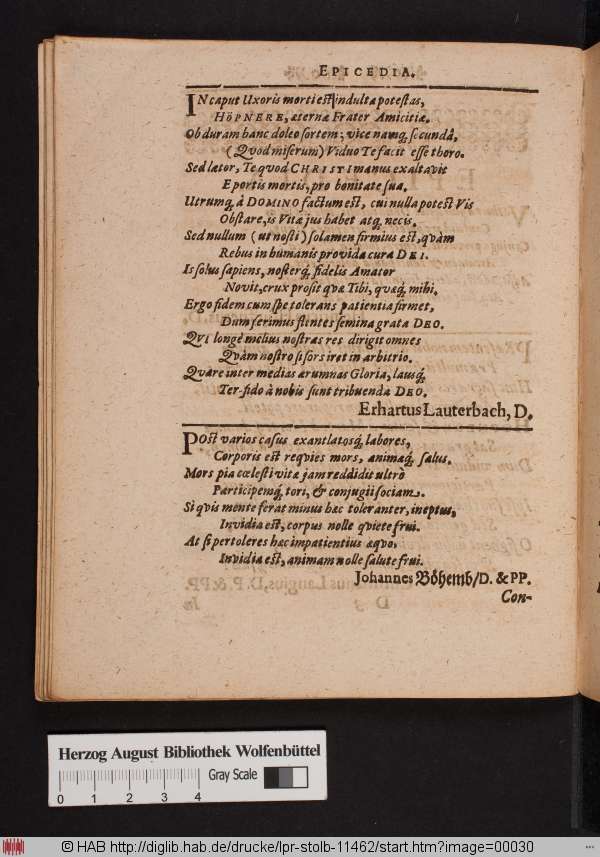 EPICEDIA.
IN caput Uxoris morti est indulta potestas,
HÖPNERE, æternæ Frater Amicitiæ.
Ob duram hanc doleo sortem; vice namq́; secundâ,
(Quod miserum) Viduo Te facit esse thoro.
Sed lætor, Te quòd CHRISTI manus exaltavit
E portis mortis, pro bonitate sua.
Utrumq́; à DOMINO factum est, cui nulla potest Vis
Obstare, is Vitæ jus habet atq́; necis.
Sed nullum (ut nosti) solamen firmius est, quàm
Rebus in humanis provida cura DEI.
Is solus sapiens, nosterq́; fidelis Amator
Novit, crux prosit quæ Tibi, quæq́; mihi.
Ergo fidem cum spe tolerans patientia firmet,
Dum ferimus flentes semina grata DEO.
QVI longè melius nostras res dirigit omnes
Quàm nostro si sors iret in arbitrio.
Quare inter medias ærumnas Gloria, lausq́;
Ter-fido à nobis sunt tribuenda DEO.
Erhartus Lauterbach, D.
Post varios casus exantlatosq́; labores,
Corporis est requies mors, animæq́; salus.
Mors pia cœlesti vitæ jam reddidit ultrò
Participemq́; tori, & conjugii sociam.
Si quis mente ferat minus hæc toleranter, ineptus,
Invidia est, corpus nolle quiete frui.
At si pertoleres hæc impatientius æquo,
Invidia est, animam nolle salute frui.
Johannes Böhemb/D. & PP.
Con-
Herzog August Bibliothek Wolfenbüttel
Gray Scale
0 1 2 3 4
© HAB http://diglib.hab.de/drucke/lpr-stolb-11462/start.htm?image=00030